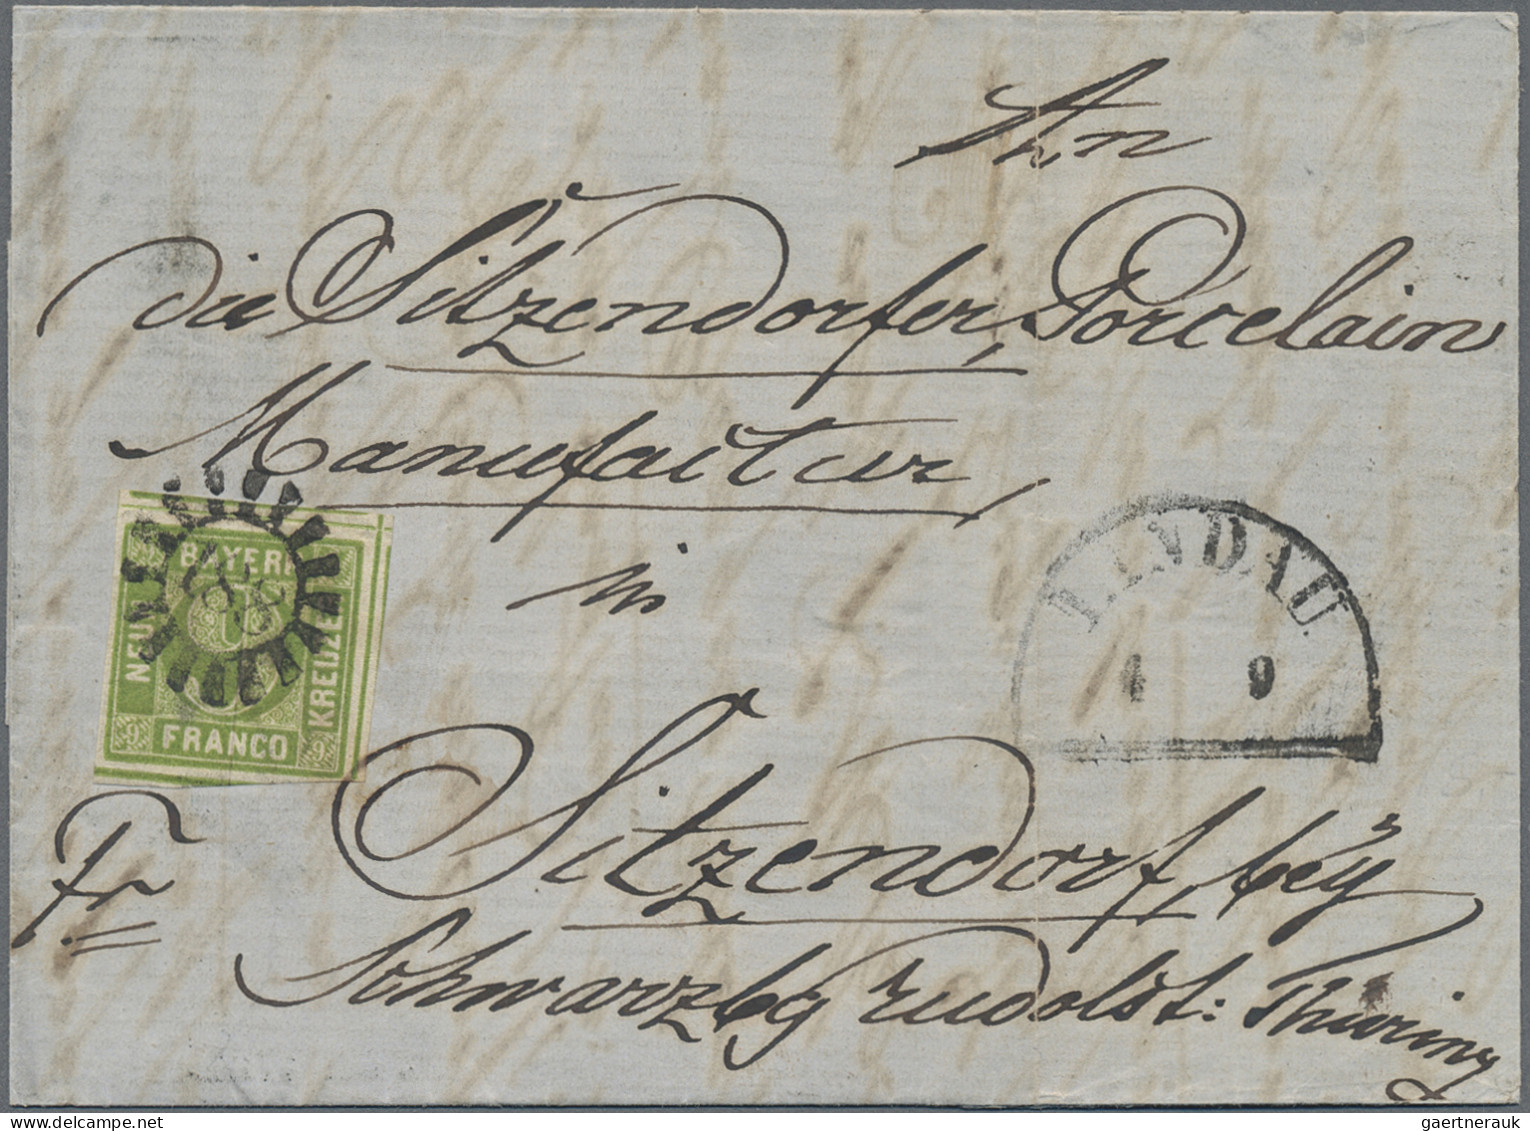 An
die Sitzendorfer, Porcelain
Manufactur,
in
BAYERN
NEUN
KREUZER
FRANCO
9
9
9
LINDAU
4 9
Sitzendorf, bey
Fr
Schwarzbg rudolst: Thüring
gaertnerauk